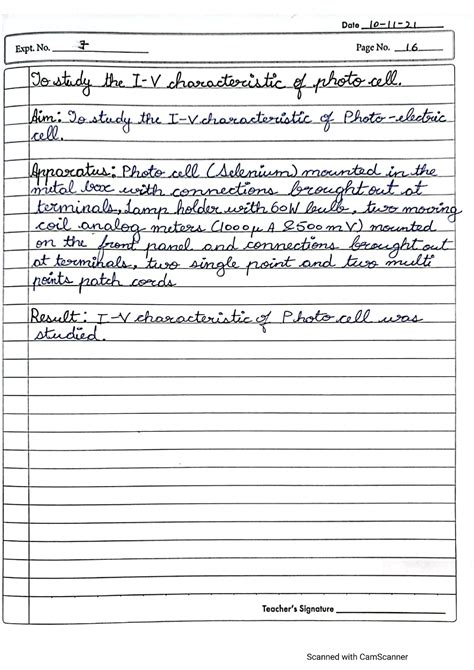 Date 10-11-21
Expt. No. 7
Page No. 16
To study the I-V characteristic of photo cell.
Aim: To study the I-V characteristic of Photo-electric
cell.
Apparatus: Photo cell (Selenium) mounted in the
metal box with connections brought out at
terminals, Lamp holder with 60W bulb, two moving
coil analog meters (1000μA & 500mV) mounted
on the front panel and connections brought out
at terminals, two single point and two multi
points patch cords
Result: I-V characteristic of Photo cell was
studied.
Teacher's Signature
Scanned with CamScanner